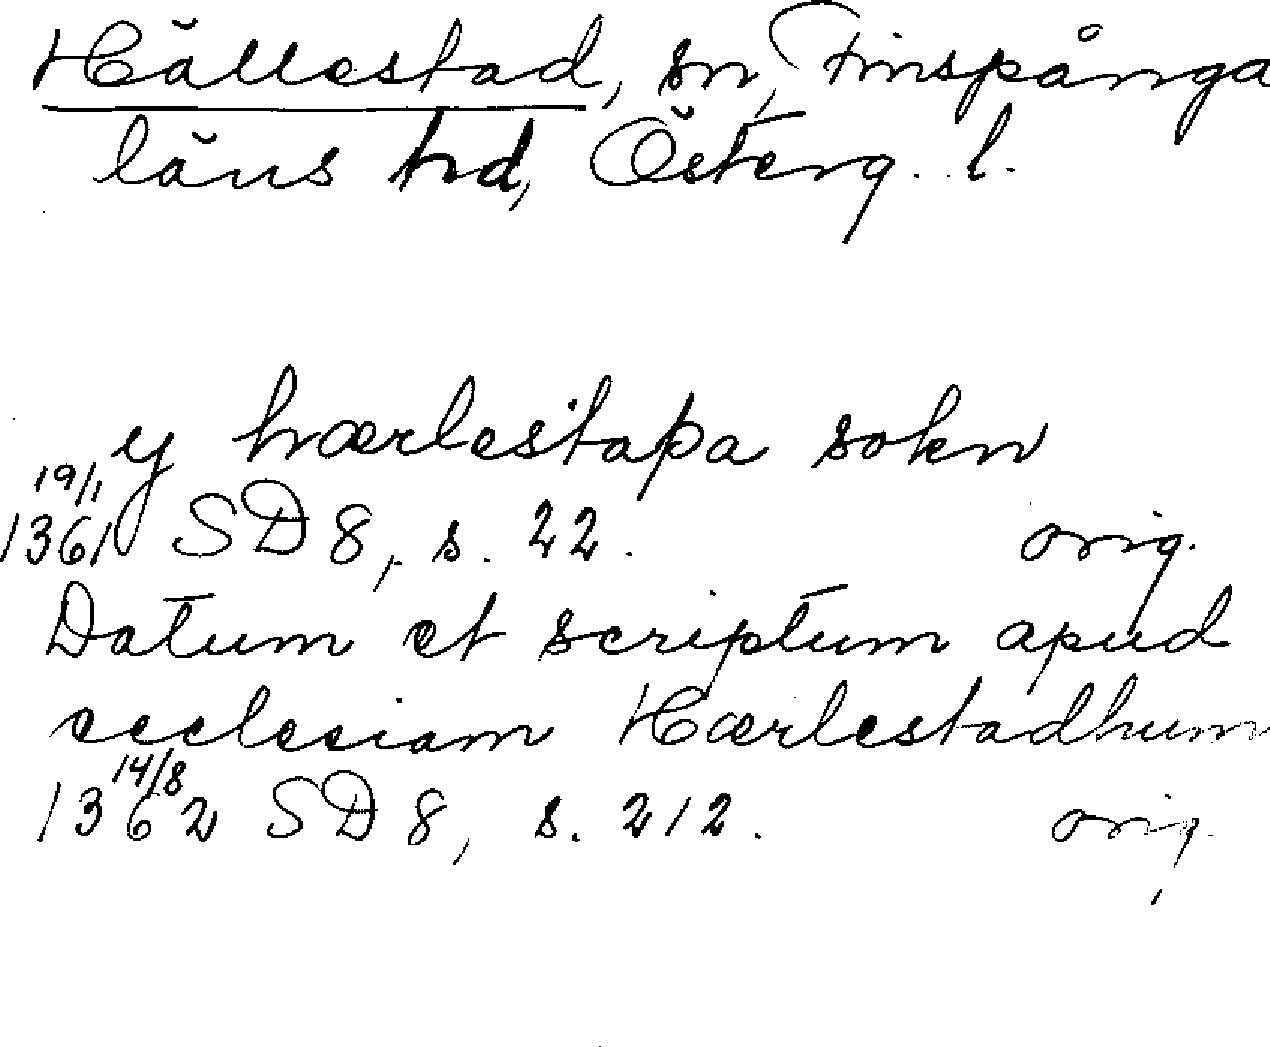 Hällestad, sn, Finspånga
läns hd, Österg. l.
y hærlestaþa sokn
19/1
1361 SD 8, s. 22. orig.
Datum et scriptum apud
ecclesiam Hærlestadhum
14/8
1362 SD 8, s. 212. orig.